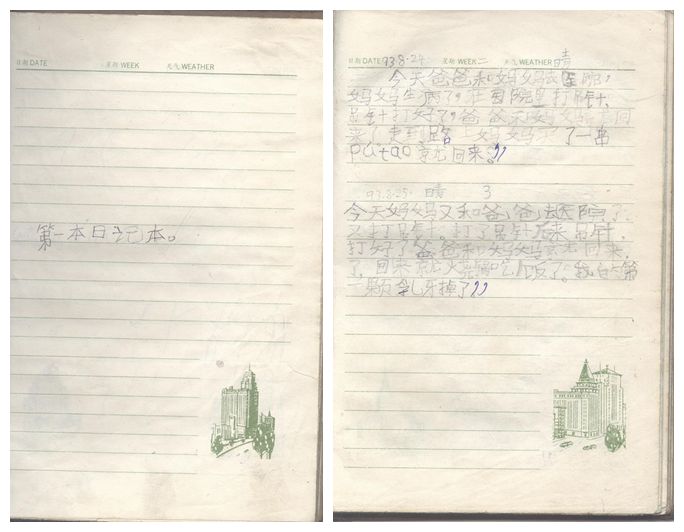 日期 DATE 星期 WEEK 天气 WEATHER
第一本日记本。
日期 DATE 93.8.24 星期 WEEK 二 天气 WEATHER 晴
今天爸爸和妈妈去医院,
妈妈生病了,在医院里打吊针,
吊针打好了爸爸和妈妈就回
来了走到路上妈妈买了一串
putao就回来。
93.8.25. 晴 3
今天妈妈又和爸爸去医院了。
又打吊针,打了吊针后来吊针,
打好了爸爸和妈妈就回来,
了,回来就吃饭了。我白天第
一颗乳牙掉了